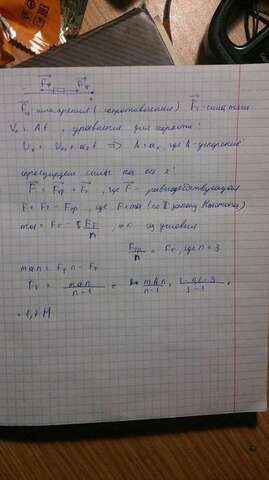 Fтр Fт
Fтр - сила трения (сопротивления) Fт - сила тяги
Vx = At, уравнение для скорости:
Ux = U0x + axt => A = ax, где A - ускорение
спроецируем силы на ось x:
F = Fтр + Fт, где F - равнодействующая
F = Fт - Fтр, где F = ma (по II закону Ньютона)
ma = Fт - Fт/n, из условия
n = 3
man = Fтn - Fт
Fт = man/n-1 = mAn/n-1